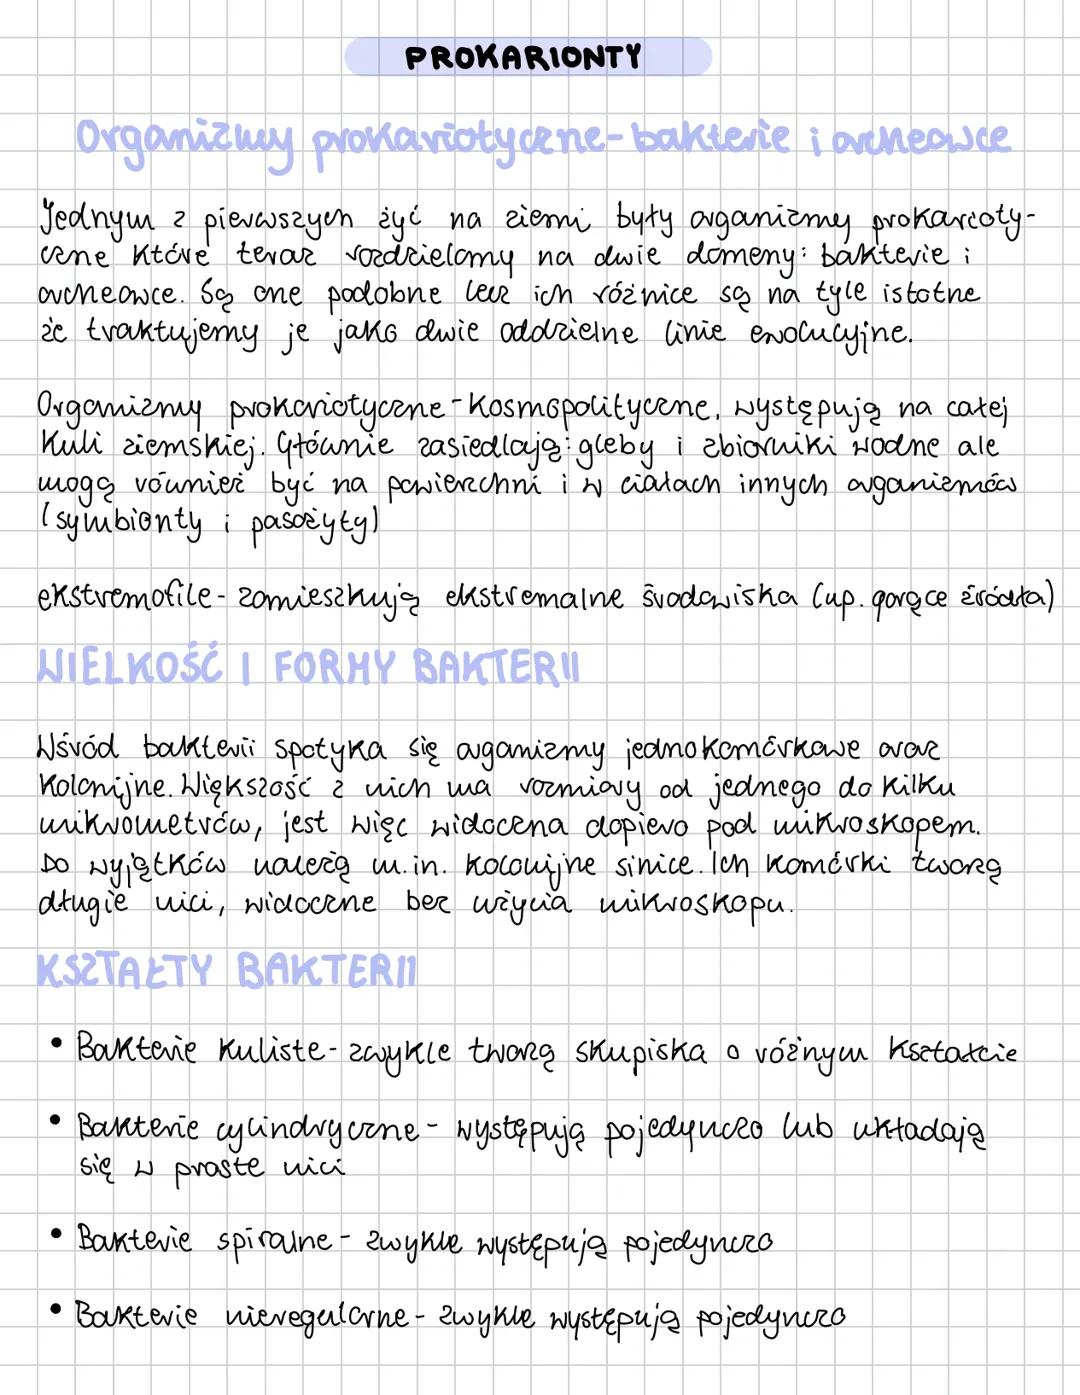 PROKARIONTY
Organizmy prokariotyczne - bakterie i archeowce
Jednym z pierwszych żyć na ziemi były organizmy prokarioty-
czne które teraz rozdzielamy na dwie domeny: bakterie i
archeowce. Są one podobne lecz ich różnice są na tyle istotne
że traktujemy je jako dwie oddzielne linie ewolucyjne.
Organizmy prokariotyczne - kosmopolityczne, występują na całej
kuli ziemskiej. Głównie zasiedlają: gleby i zbiorniki wodne ale
mogą również być na powierzchni i w ciałach innych organizmów
(symbionty i pasożyty)
ekstremofile - zamieszkują ekstremalne środowiska (np. gorące źródła)
WIELKOŚĆ I FORMY BAKTERII
Wśród bakterii spotyka się organizmy jednokomórkowe oraz
kolonijne. Większość z nich ma rozmiary od jednego do kilku
mikrometrów, jest więc widoczna dopiero pod mikroskopem.
Do wyjątków należą m.in. kolonijne sinice. Ich komórki tworzą
długie nici, widoczne bez użycia mikroskopu.
KSZTAŁTY BAKTERII
• Bakterie kuliste - zwykle tworzą skupiska o różnym kształcie
• Bakterie cylindryczne - występują pojedynczo lub układają
się w proste nici
• Bakterie spiralne - zwykle występują pojedynczo
• Bakterie nieregularne - zwykle występują pojedynczo